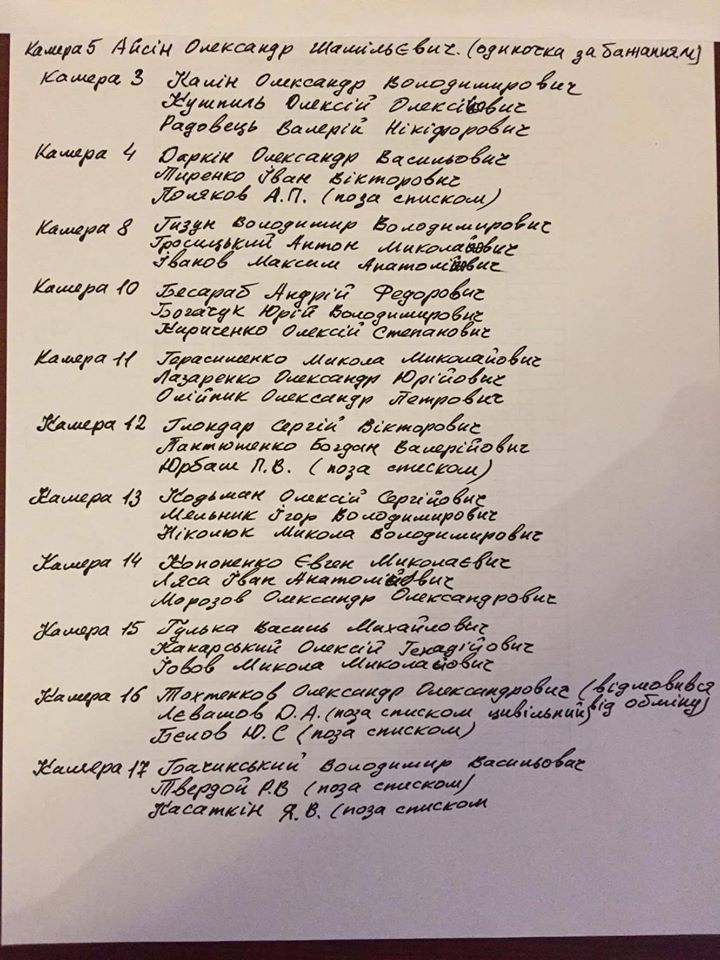 Камера 5 Айсін Олександр Шамільєвич. (одиночка за бажанням)
Камера 3 Калін Олександр Володимирович
Кушпиль Олексій Олексійович
Радовець Валерій Нікіфорович
Камера 4 Даркін Олександр Васильович
Тиренко Іван Вікторович
Поляков А.П. (поза списком)
Камера 8 Гизун Володимир Володимирович
Гросицький Антон Миколайович
Іванов Максим Анатолійович
Камера 10 Бесараб Андрій Федорович
Богачук Юрій Володимирович
Кириченко Олексій Степанович
Камера 11 Герасименко Микола Миколайович
Лазаренко Олександр Юрійович
Олійник Олександр Петрович
Камера 12 Глондар Сергій Вікторович
Пантюшенко Богдан Валерійович
Юрбаш П.В. (поза списком)
Камера 13 Кодьман Олексій Сергійович
Мельник Ігор Володимирович
Ніколюк Микола Володимирович
Камера 14 Кононенко Євген Миколаєвич
Ляса Іван Анатолійович
Морозов Олександр Олександрович
Камера 15 Гулька Василь Михайлович
Канарський Олексій Генадійович
Іовов Микола Миколайович
Камера 16 Тохтенков Олександр Олександрович (відмовився від обміну)
Лєвашов Д.А. (поза списком цивільний)
Бєлов Ю.С (поза списком)
Камера 17 Бачинський Володимир Васильович
Твердой Р.В (поза списком)
Касаткін Я.В. (поза списком